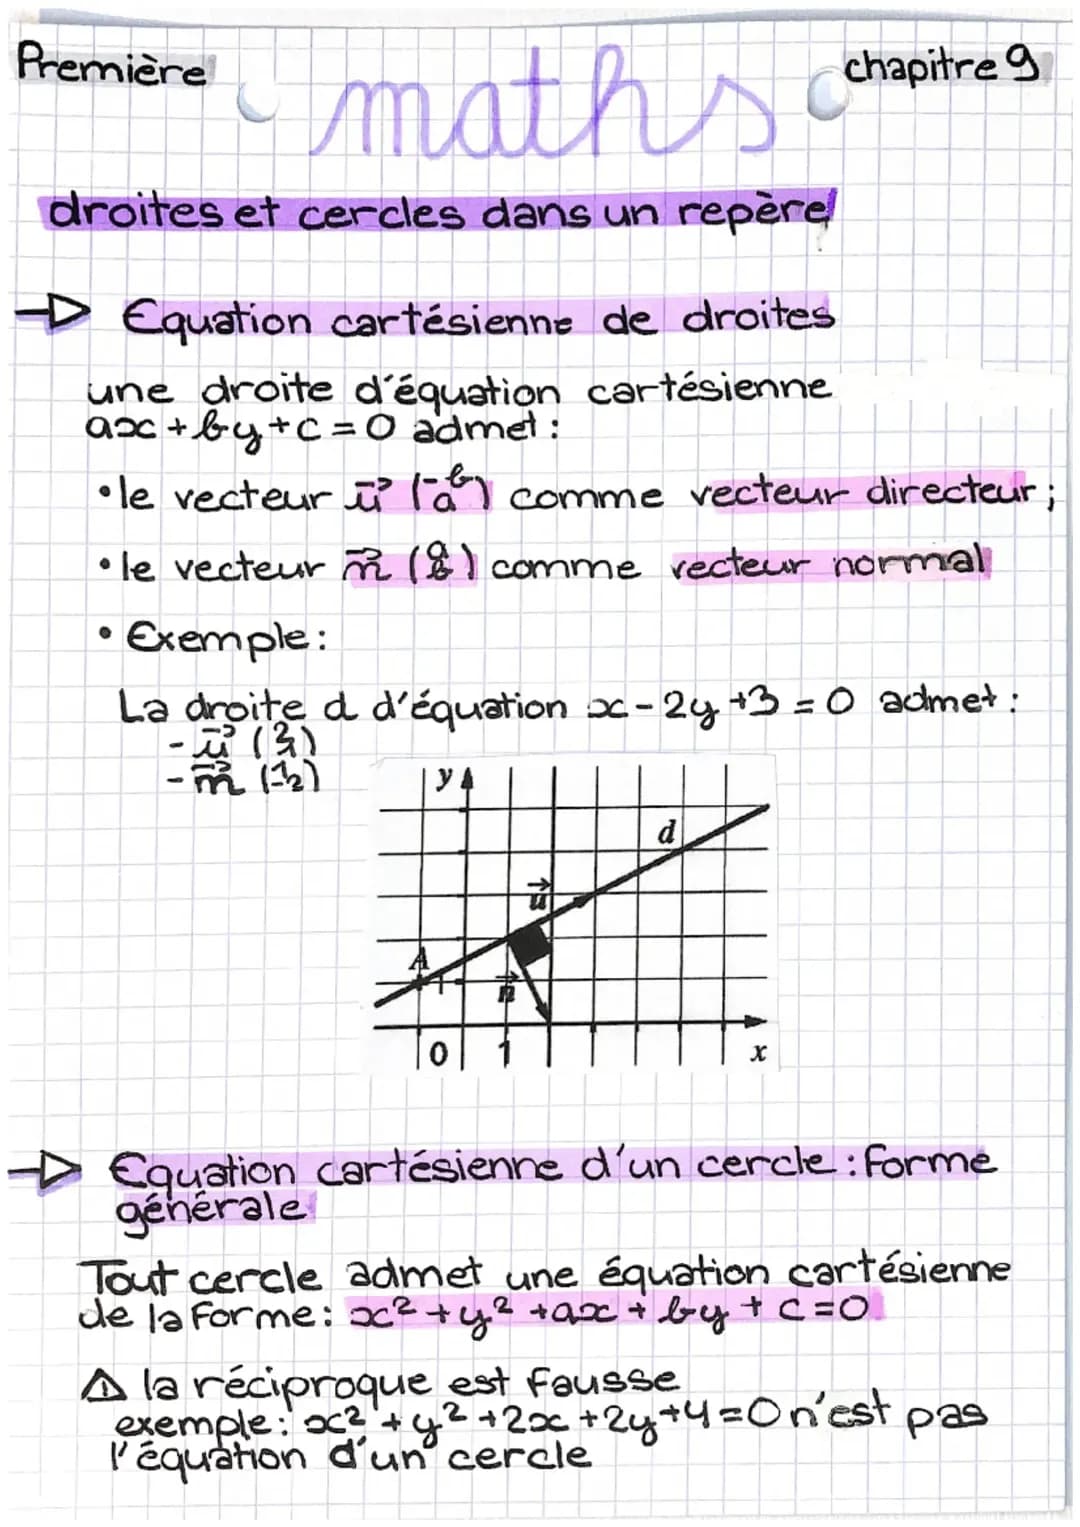 Première
maths
chapitre 9
droites et cercles dans un repère
Equation cartésienne de droites
une droite d'équation cartésienne
ax + by + c = 0 admet :
• le vecteur u⃗ (-b a) comme vecteur directeur ;
• le vecteur n⃗ (a b) comme vecteur normal
• Exemple :
La droite d d'équation x - 2y + 3 = 0 admet :
- u⃗ (2 1)
- n⃗ (1 -2)
y
d
u⃗
A
1
n⃗
0 1 x
Equation cartésienne d'un cercle : forme
générale
Tout cercle admet une équation cartésienne
de la forme : x² + y² + ax + by + c = 0
⚠ la réciproque est fausse
exemple : x² + y² + 2x + 2y + 4 = 0 n'est pas
l'équation d'un cercle